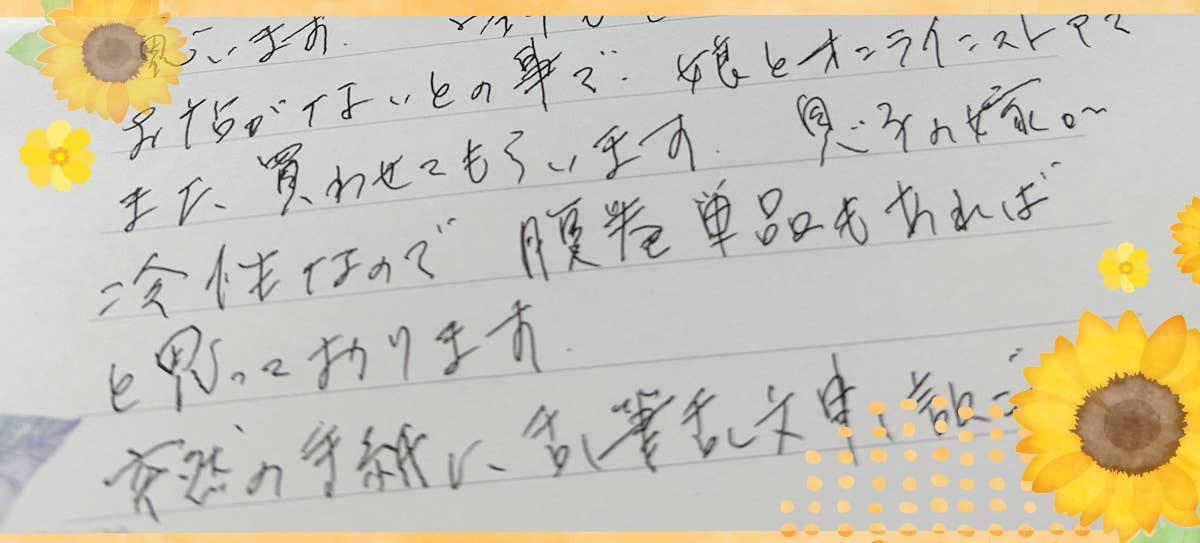 思います。
お店がないとの事で、娘とオンラインストアで
また、買わせてもらいます。思いその嫁が
冷性なので腹巻単品もあれば
と思っております。
突然の手紙に、乱筆乱文申し訳ご